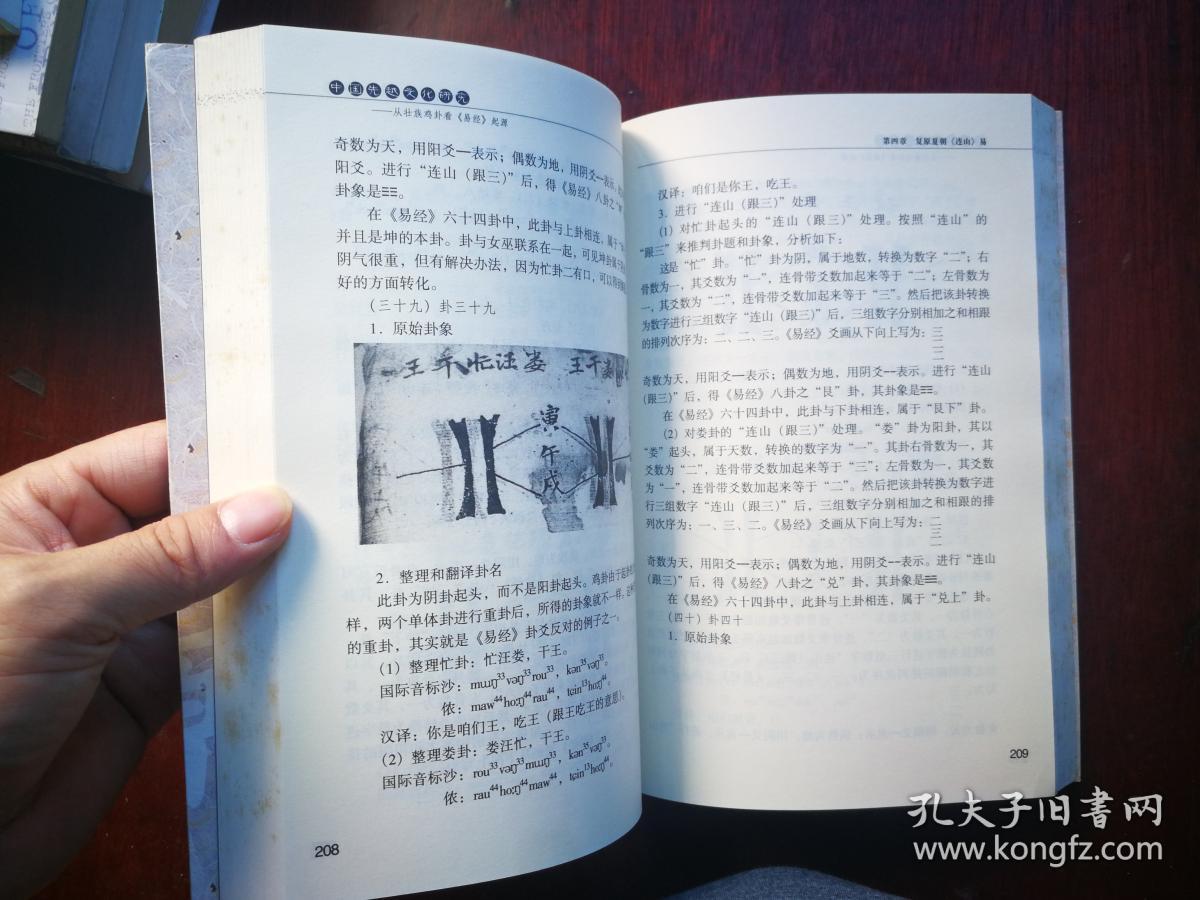 中国先越文化研究
——从壮族鸡卦看《易经》起源
奇数为天，用阳爻一表示；偶数为地，用阴爻--表示。
阳爻。进行“连山（跟三）”后，得《易经》八卦之
卦象是☷。
在《易经》六十四卦中，此卦与上卦相连，属于
并且是坤的本卦。卦与女巫联系在一起，可见坤卦属于
阴气很重，但有解决办法，因为忙卦二有口，可以得到
好的方面转化。
（三十九）卦三十九
1．原始卦象
王 忙汪娄 王干娄
寅
午
戌
2．整理和翻译卦名
此卦为阴卦起头，而不是阳卦起头。鸡卦由于起
样，两个单体卦进行重卦后，所得的卦象就不一样。
的重卦，其实就是《易经》卦爻反对的例子之一。
（1）整理忙卦：忙汪娄，干王。
国际音标沙：mɯŋ³³vəŋ³³rou³³，kən³⁵vəŋ³⁵。
侬：maw⁴⁴ho:ŋ⁴⁴rau⁴⁴，tɕin¹³ho:ŋ⁴⁴。
汉译：你是咱们王，吃王（跟王吃王的意思）。
（2）整理娄卦：娄汪忙，干王。
国际音标沙：rou³³vəŋ³³mɯŋ³³，kən³⁵vəŋ³⁵。
侬：rau⁴⁴ho:ŋ⁴⁴maw⁴⁴，tɕin¹³ho:ŋ⁴⁴。
208
第四章 复原夏朝《连山》易
汉译：咱们是你王，吃王。
3．进行“连山（跟三）”处理
（1）对忙卦起头的“连山（跟三）”处理。按照“连山”的
“跟三”来推判卦题和卦象，分析如下：
这是“忙”卦。“忙”卦为阴，属于地数，转换为数字“二”；右
骨数为一，其爻数为“一”，连骨带爻数加起来等于“二”；左骨数为
一，其爻数为“二”，连骨带爻数加起来等于“三”。然后把该卦转换
为数字进行三组数字“连山（跟三）”后，三组数字分别相加之和相跟
的排列次序为：二、二、三。《易经》爻画从下向上写为：三
二
二
奇数为天，用阳爻一表示；偶数为地，用阴爻--表示。进行“连山
（跟三）”后，得《易经》八卦之“艮”卦，其卦象是☶。
在《易经》六十四卦中，此卦与下卦相连，属于“艮下”卦。
（2）对娄卦的“连山（跟三）”处理。“娄”卦为阳卦，其以
“娄”起头，属于天数，转换的数字为“一”。其卦右骨数为一，其
爻数为“二”，连骨带爻数加起来等于“三”；左骨数为一，其爻数
为“一”，连骨带爻数加起来等于“二”。然后把该卦转换为数字进
行三组数字“连山（跟三）”后，三组数字分别相加之和相跟的排
列次序为：一、三、二。《易经》爻画从下向上写为：二
三
一
奇数为天，用阳爻一表示；偶数为地，用阴爻--表示。进行“连山
（跟三）”后，得《易经》八卦之“兑”卦，其卦象是☱。
在《易经》六十四卦中，此卦与上卦相连，属于“兑上”卦。
（四十）卦四十
1．原始卦象
209
孔夫子旧書网
www.kongfz.com